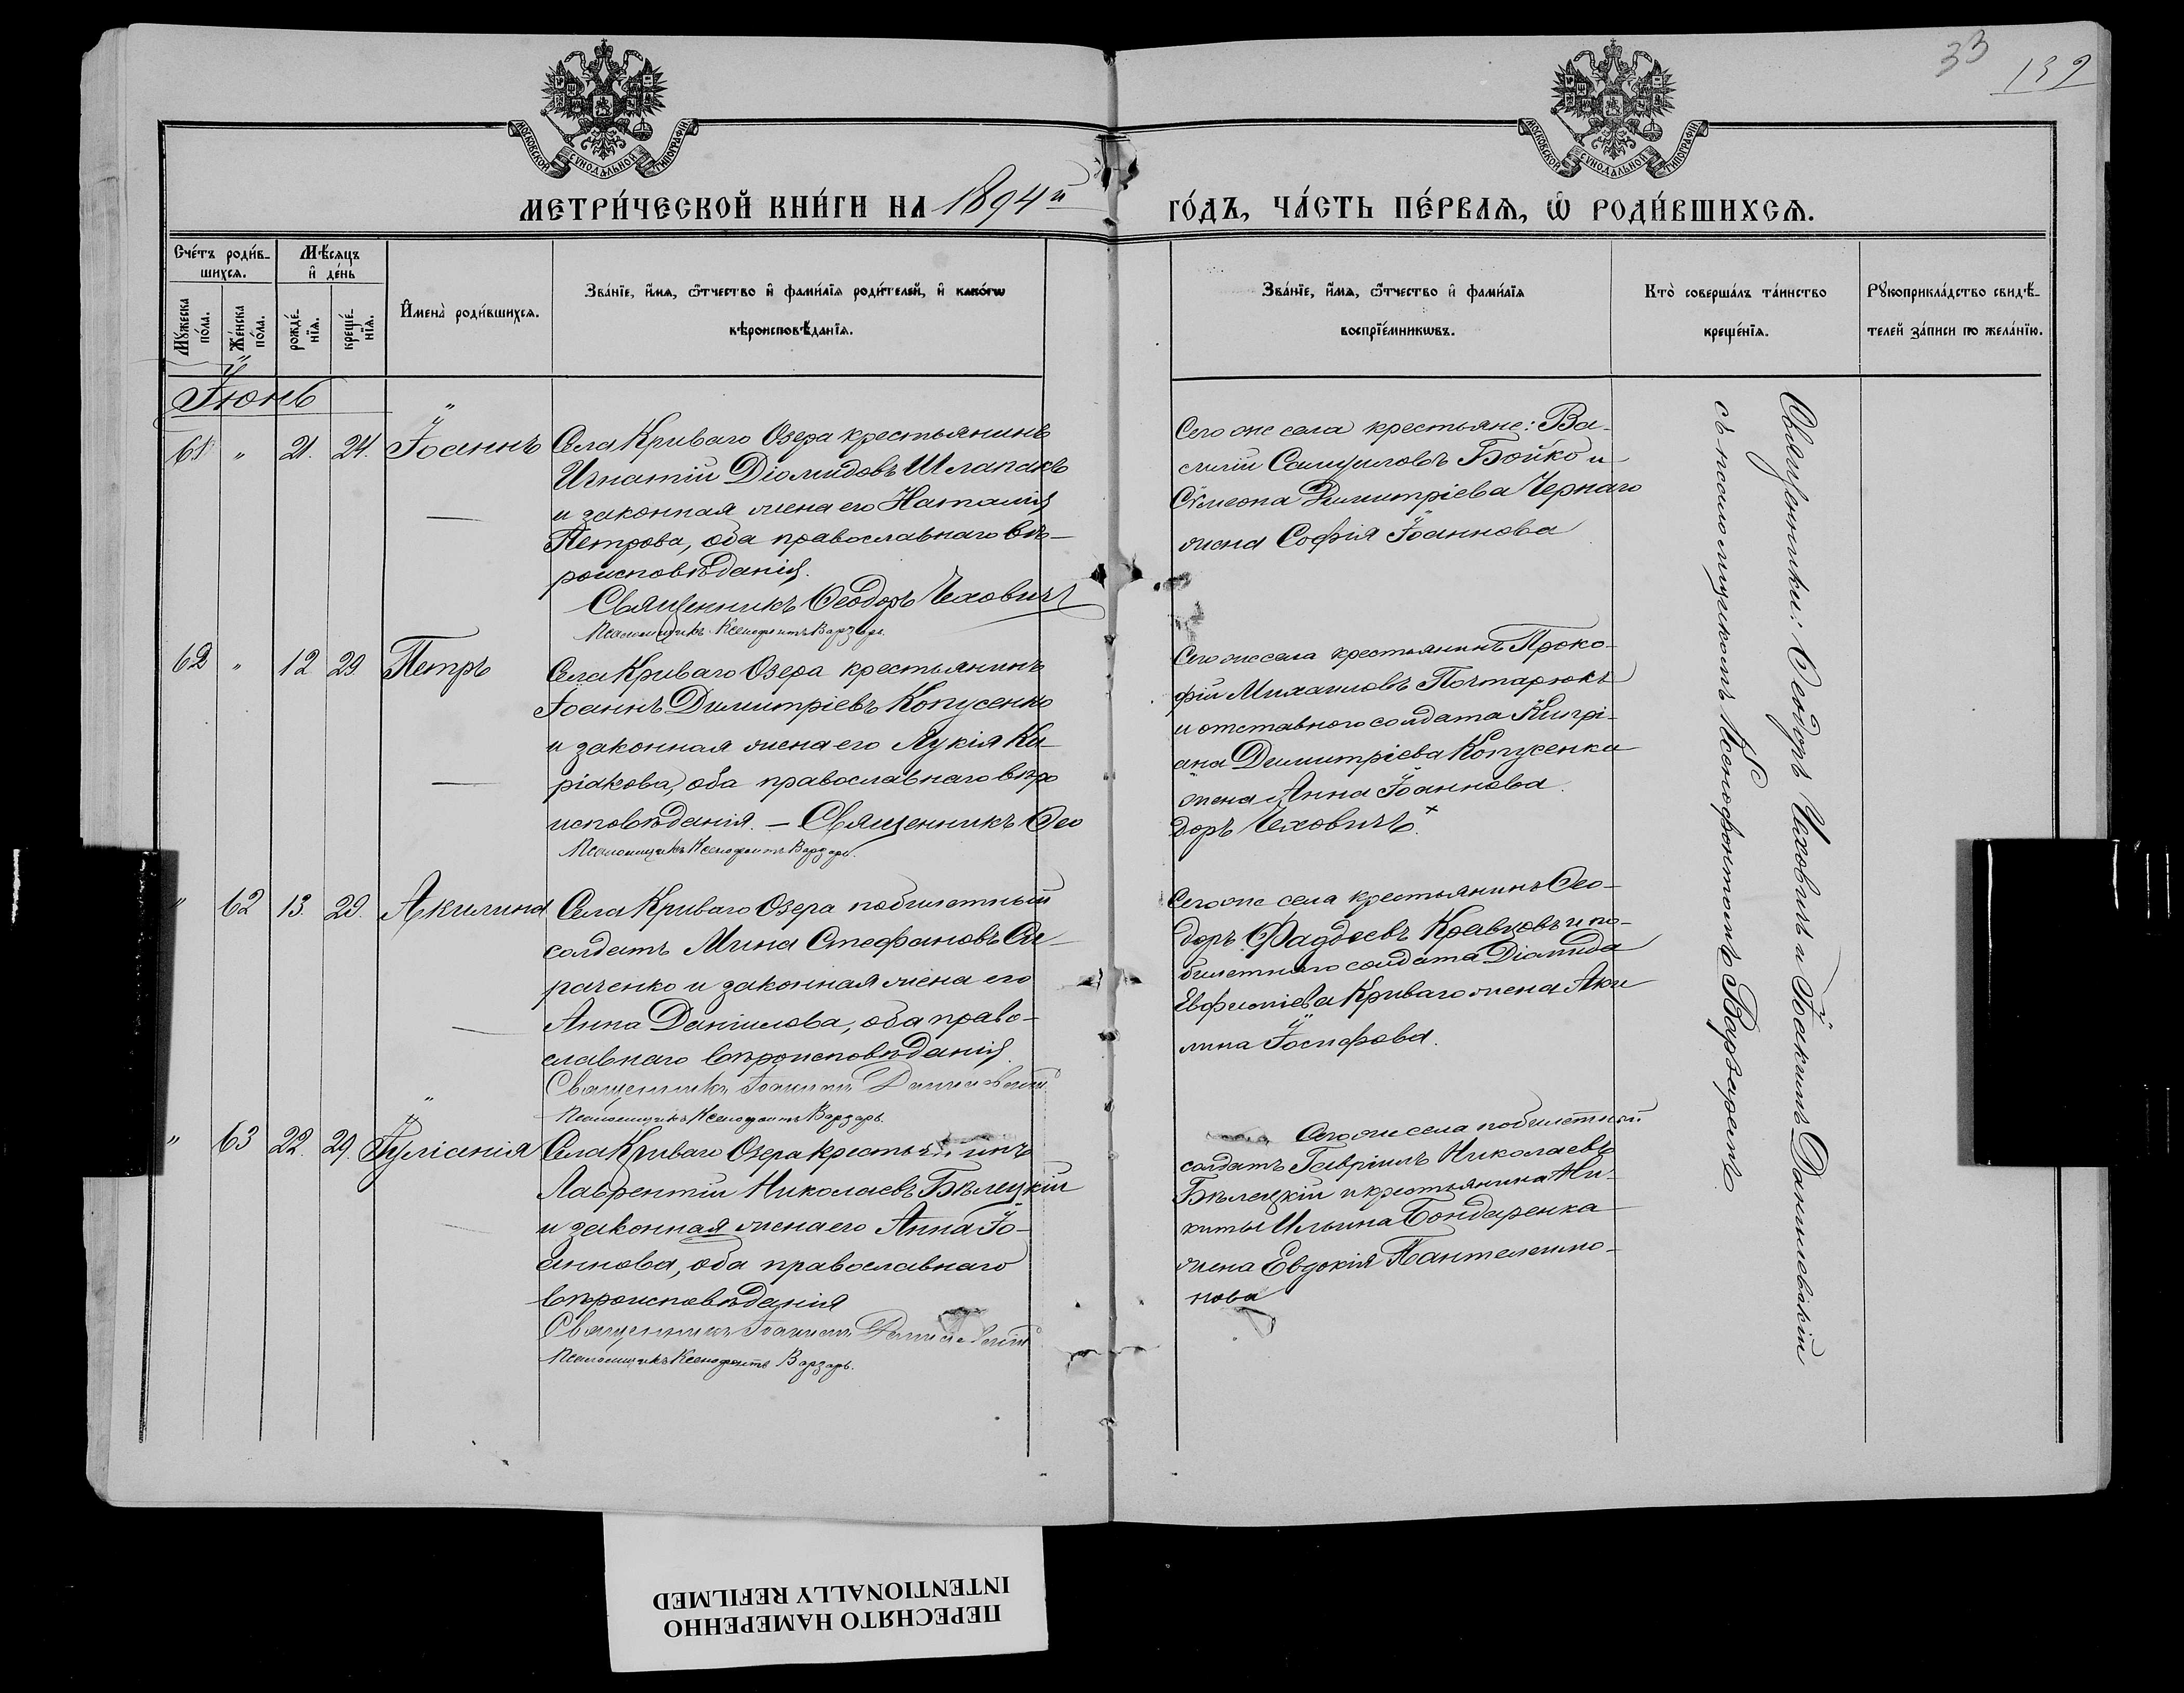 33
139
МОСКОВСКОЙ СѴНОДАЛЬНОЙ ТИПОГРАФІИ.
МОСКОВСКОЙ СѴНОДАЛЬНОЙ ТИПОГРАФІИ.
МЕТРИ́ЧЕСКОЙ КНИ́ГИ НА 1894й
ГО́ДЪ, ЧА́СТЬ ПЕ́РВАѦ, Ѡ҆ РОДИ́ВШИХСѦ.
Сче́тъ роди́в-
шихсѧ.
Мꙋ́жеска
по́ла.
Же́нска
по́ла.
Мѣ́сѧцъ
и҆ де́нь
рожде́-
нїѧ.
креще́-
нїѧ.
И҆мена̀ роди́вшихсѧ.
Зва́нїе, и҆́мѧ, ѻ҆́тчество и҆ фами́лїѧ роди́телей, и҆ како́гѡ
вѣроисповѣ́данїѧ.
Зва́нїе, и҆́мѧ, ѻ҆́тчество и҆ фами́лїѧ
воспрїе́мникѡвъ.
Кто̀ соверша́лъ та́инство
креще́нїѧ.
Рꙋкоприкла́дство свидѣ́-
телей за́писи по жела́нїю.
Іюнь
61 " 21. 24. Іоаннъ
Села Криваго Озера крестьянинъ
Игнатій Діомидовъ Шлапакъ
и законная жена его Наталія
Петрова, оба православнаго вѣ-
роисповѣданія.
Священникъ Ѳеодоръ Чеховичъ
Псаломщикъ Ксенофонтъ Варзарь.
Сего же села крестьяне: Ва-
силій Самуиловъ Бойко и
Сѵмеона Димитріева Чернаго
жена Софія Іоаннова
62 " 12 29. Петръ
Села Криваго Озера крестьянинъ
Іоаннъ Димитріевъ Копусенко
и законная жена его Лукія Ки-
ріакова, оба православнаго вѣро
исповѣданія. — Священникъ Ѳео
Псаломщикъ Ксенофонтъ Варзарь.
Сего же села крестьянинъ Проко-
фій Михаиловъ Почтарюкъ
и отставного солдата Кипрі-
ана Димитріева Копусенка
жена Анна Іоаннова.
доръ Чеховичъ.
" 62 13. 29. Акилина
Села Криваго Озера побилетный
солдатъ Мина Стефановъ
раченко и законная жена его
Анна Даніилова, оба право-
славнаго вѣроисповѣданія.
Священникъ Іоакимъ Данилевскій
Псаломщикъ Ксенофонтъ Варзарь.
Сего же села крестьянинъ Ѳео-
доръ Фаддеевъ Кравцовъ и по-
билетнаго солдата Діомида
Евфиміева Криваго жена Аки
лина Іосифова.
" 63 22. 29. Іуліанія
Села Криваго Озера крестьянинъ
Лаврентій Николаевъ Бѣлецкій
и законная жена его Анна Іо-
аннова, оба православнаго
вѣроисповѣданія
Священникъ Іоакимъ Данилевскій
Псаломщикъ Ксенофонтъ Варзарь.
Сего же села побилетный
солдатъ Гавріилъ Николаевъ
Бѣлецкій и крестьянина Ни-
киты Ильина Бондаренка
жена Евдокія Пантелеимо-
нова
Священники: Ѳеодоръ Чеховичъ и Іоакимъ Данилевскій
съ псаломщикомъ Ксенофонтомъ Варзаремъ.
ПЕРЕСНЯТО НАМЕРЕННО
INTENTIONALLY REFILMED